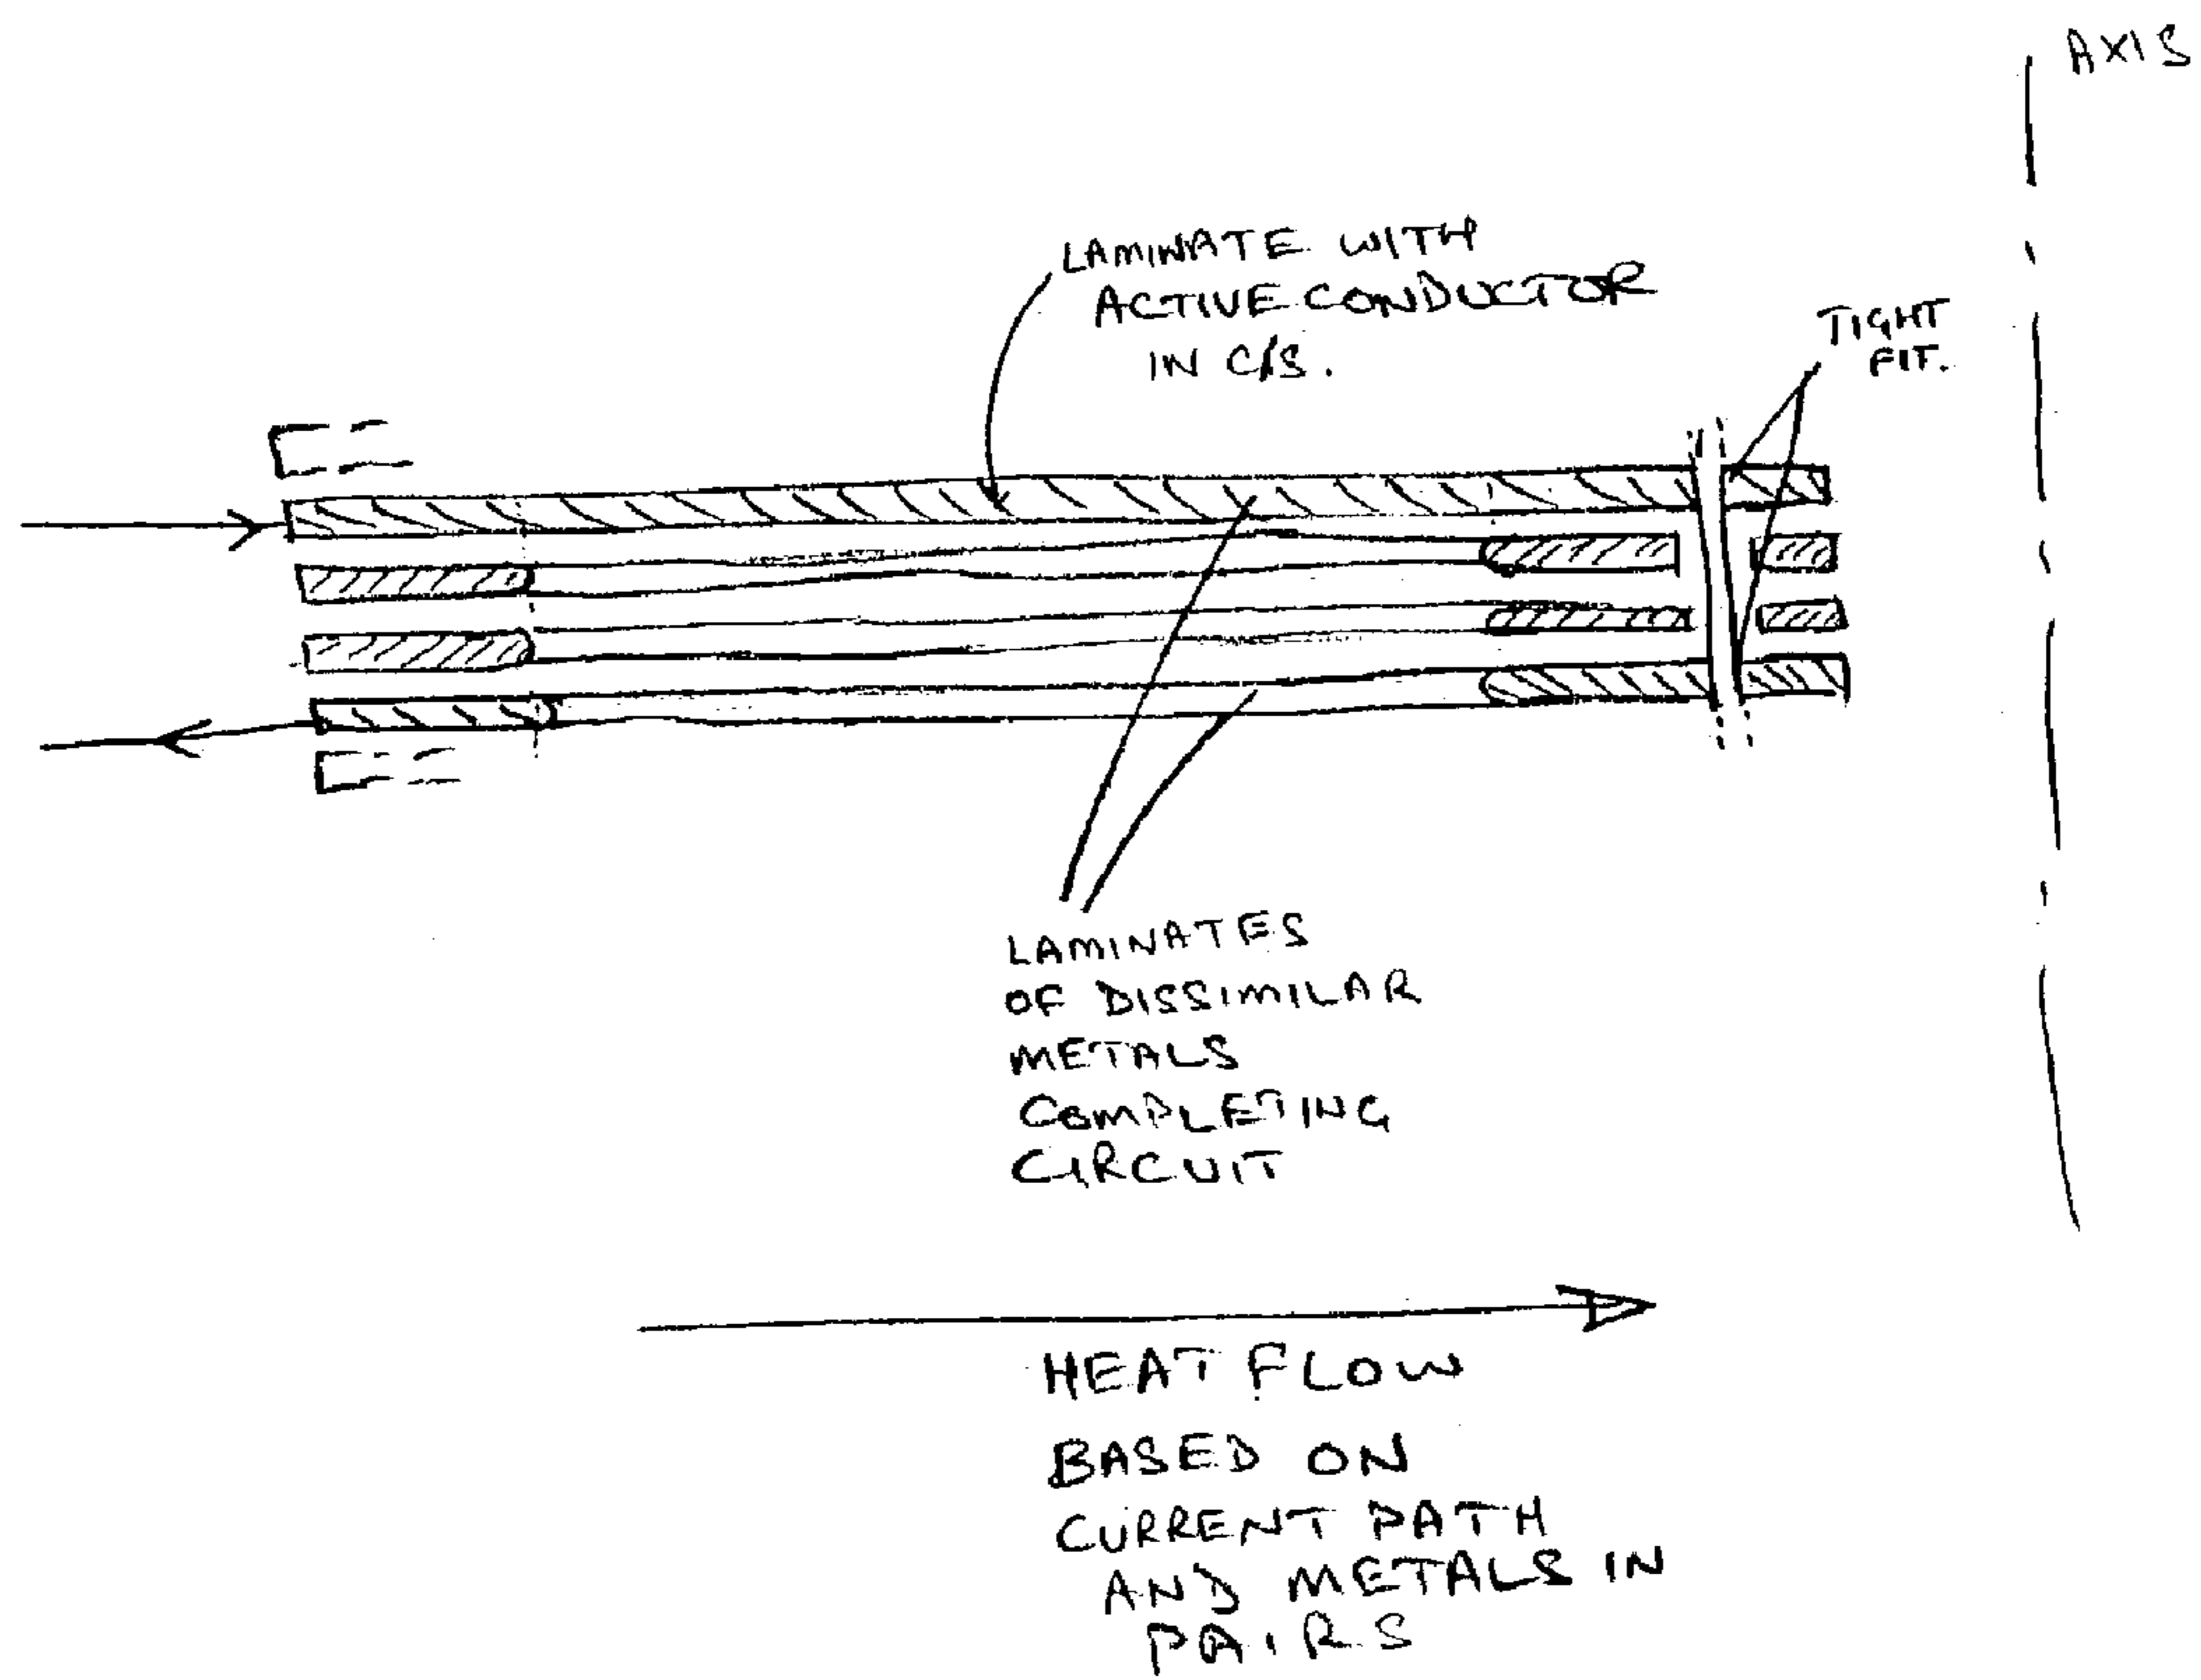 AXIS
LAMINATE WITH
ACTIVE CONDUCTOR
IN C/S.
TIGHT
FIT.
LAMINATES
OF DISSIMILAR
METALS
COMPLETING
CIRCUIT
HEAT FLOW
BASED ON
CURRENT PATH
AND METALS IN
PAIRS